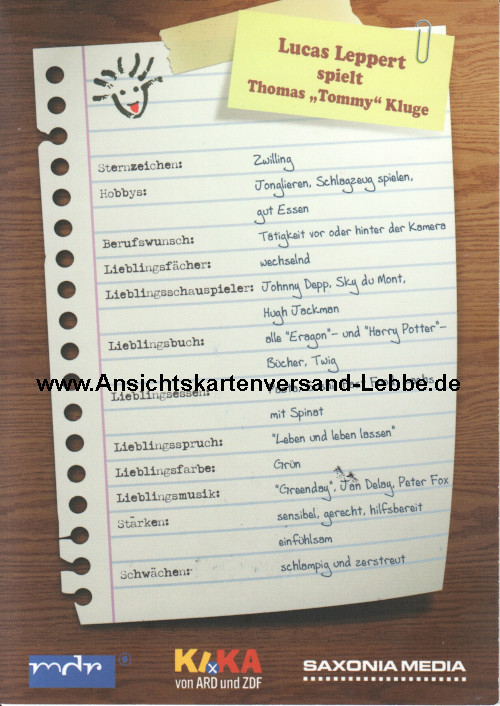 Lucas Leppert
spielt
Thomas „Tommy“ Kluge
Sternzeichen: Zwilling
Hobbys: Jonglieren, Schlagzeug spielen,
gut Essen
Berufswunsch: Tätigkeit vor oder hinter der Kamera
Lieblingsfächer: wechselnd
Lieblingsschauspieler: Johnny Depp, Sky du Mont,
Hugh Jackman
Lieblingsbuch: alle "Eragon"- und "Harry Potter"-
Bücher, Twig
www.Ansichtskartenversand-Lebbe.de
Lieblingsessen:
mit Spinat
Lieblingsspruch: "Leben und leben lassen"
Lieblingsfarbe: Grün
Lieblingsmusik: "Greenday", Jan Delay, Peter Fox
Stärken: sensibel, gerecht, hilfsbereit
einfühlsam
Schwächen: schlampig und zerstreut
mdr
KiKA
von ARD und ZDF
SAXONIA MEDIA